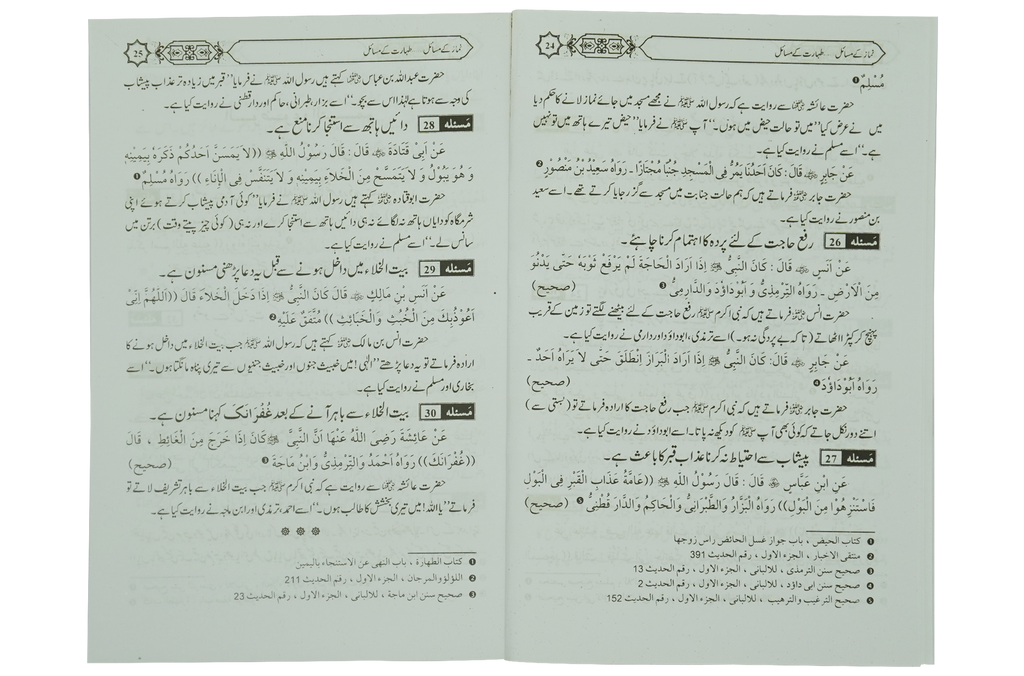 24
نماز کے مسائل ... طہارت کے مسائل
مُسْلِمٌ ❶
حضرت عائشہ ؓ سے روایت ہے کہ رسول اللہ ﷺ نے مجھے مسجد میں جائے نماز لانے کا حکم دیا
میں نے عرض کیا ”میں تو حالت حیض میں ہوں۔“ آپ ﷺ نے فرمایا ”حیض تیرے ہاتھ میں تو نہیں
ہے۔“ اسے مسلم نے روایت کیا ہے۔
عَنْ جَابِرٍ ؓ قَالَ: كَانَ اَحَدُنَا يَمُرُّ فِى الْمَسْجِدِ جُنُبًا مُجْتَازًا ۔ رَوَاهُ سَعِيْدُ بْنُ مَنْصُوْرٍ ❷
حضرت جابر ؓ فرماتے ہیں کہ ہم حالت جنابت میں مسجد سے گزر جایا کرتے تھے۔ اسے سعید
بن منصور نے روایت کیا ہے۔
مَسئله 26 رفع حاجت کے لئے پردہ کا اہتمام کرنا چاہئے۔
عَنْ اَنَسٍ ؓ قَالَ : كَانَ النَّبِىُّ ﷺ اِذَا اَرَادَ الْحَاجَةَ لَمْ يَرْفَعْ ثَوْبَهُ حَتّٰى يَدْنُوَ
مِنَ الْاَرْضِ ۔ رَوَاهُ التِّرْمِذِىُّ وَ اَبُوْدَاوُدَ وَالدَّارِمِىُّ ❸ (صحيح)
حضرت انس ؓ فرماتے ہیں کہ نبی اکرم ﷺ رفع حاجت کے لئے بیٹھنے لگتے تو زمین کے قریب
پہنچ کر کپڑا اٹھاتے (تا کہ بے پردگی نہ ہو۔) اسے ترمذی، ابوداؤد اور دارمی نے روایت کیا ہے۔
عَنْ جَابِرٍ ؓ قَالَ: كَانَ النَّبِىُّ ﷺ اِذَا اَرَادَ الْبَرَازَ انْطَلَقَ حَتّٰى لَا يَرَاهُ اَحَدٌ ۔
رَوَاهُ اَبُوْدَاوُدَ ❹ (صحيح)
حضرت جابر ؓ فرماتے ہیں کہ نبی اکرم ﷺ جب رفع حاجت کا ارادہ فرماتے تو (بستی سے)
اتنے دور نکل جاتے کہ کوئی بھی آپ ﷺ کو دیکھ نہ پاتا۔ اسے ابوداؤد نے روایت کیا ہے۔
مَسئله 27 پیشاب سے احتیاط نہ کرنا عذاب قبر کا باعث ہے۔
عَنِ ابْنِ عَبَّاسٍ ؓ قَالَ : قَالَ رَسُوْلُ اللّٰهِ ﷺ ((عَامَّةُ عَذَابِ الْقَبْرِ فِى الْبَوْلِ
فَاسْتَنْزِهُوْا مِنَ الْبَوْلِ)) رَوَاهُ الْبَزَّارُ وَالطَّبْرَانِىُّ وَالْحَاكِمُ وَالدَّارَ قُطْنِىُّ ❺ (صحيح)
❶ كتاب الحيض ، باب جواز غسل الحائض رأس زوجها
❷ منتقى الاخبار ، الجزء الاول ، رقم الحديث 391
❸ صحيح سنن الترمذى ، للالبانى ، الجزء الاول ، رقم الحديث 13
❹ صحيح سنن ابى داؤد ، للالبانى ، الجزء الاول ، رقم الحديث 2
❺ صحيح الترغيب والترهيب ، للالبانى ، الجزء الاول ، رقم الحديث 152
25
نماز کے مسائل ... طہارت کے مسائل
حضرت عبداللہ بن عباس ؓ کہتے ہیں رسول اللہ ﷺ نے فرمایا ”قبر میں زیادہ تر عذاب پیشاب
کی وجہ سے ہوتا ہے لہٰذا اس سے بچو۔“ اسے بزار، طبرانی، حاکم اور دارقطنی نے روایت کیا ہے۔
مَسئله 28 دائیں ہاتھ سے استنجا کرنا منع ہے۔
عَنْ اَبِىْ قَتَادَةَ ؓ قَالَ : قَالَ رَسُوْلُ اللّٰهِ ﷺ ((لَا يَمَسَّنَّ اَحَدُكُمْ ذَكَرَهُ بِيَمِيْنِهِ
وَ هُوَ يَبُوْلُ وَ لَا يَتَمَسَّحْ مِنَ الْخَلَاءِ بِيَمِيْنِهِ وَ لَا يَتَنَفَّسْ فِى الْاِنَاءِ )) رَوَاهُ مُسْلِمٌ ❶
حضرت ابوقتادہ ؓ کہتے ہیں رسول اللہ ﷺ نے فرمایا ”کوئی آدمی پیشاب کرتے ہوئے اپنی
شرمگاہ کو دایاں ہاتھ نہ لگائے نہ ہی دائیں ہاتھ سے استنجا کرے اور نہ ہی (کوئی چیز پیتے وقت) برتن میں
سانس لے۔“ اسے مسلم نے روایت کیا ہے۔
مَسئله 29 بیت الخلاء میں داخل ہونے سے قبل یہ دعا پڑھنی مسنون ہے۔
عَنْ اَنَسِ بْنِ مَالِكٍ ؓ قَالَ كَانَ النَّبِىُّ ﷺ اِذَا دَخَلَ الْخَلَاءَ قَالَ ((اَللّٰهُمَّ اِنِّىْ
اَعُوْذُبِكَ مِنَ الْخُبُثِ وَالْخَبَائِثِ )) مُتَّفَقٌ عَلَيْهِ ❷
حضرت انس بن مالک ؓ کہتے ہیں کہ رسول اللہ ﷺ جب بیت الخلاء میں داخل ہونے کا
ارادہ فرماتے تو یہ دعا پڑھتے ”الٰہی! میں خبیث جنوں اور خبیث جنیوں سے تیری پناہ مانگتا ہوں۔“ اسے
بخاری اور مسلم نے روایت کیا ہے۔
مَسئله 30 بیت الخلاء سے باہر آنے کے بعد غُفْرَانَکَ کہنا مسنون ہے۔
عَنْ عَائِشَةَ رَضِىَ اللّٰهُ عَنْهَا اَنَّ النَّبِىَّ ﷺ كَانَ اِذَا خَرَجَ مِنَ الْغَائِطِ ، قَالَ
((غُفْرَانَكَ)) رَوَاهُ اَحْمَدُ وَالتِّرْمِذِىُّ وَابْنُ مَاجَةَ ❸ (صحيح)
حضرت عائشہ ؓ سے روایت ہے کہ نبی اکرم ﷺ جب بیت الخلاء سے باہر تشریف لاتے تو
فرماتے ”یا اللہ! میں تیری بخشش کا طالب ہوں۔“ اسے احمد، ترمذی اور ابن ماجہ نے روایت کیا ہے۔
❶ كتاب الطهارة ، باب النهى عن الاستنجاء باليمين
❷ اللؤلؤ والمرجان ، الجزء الاول ، رقم الحديث 211
❸ صحيح سنن ابن ماجة ، للالبانى ، الجزء الاول ، رقم الحديث 23